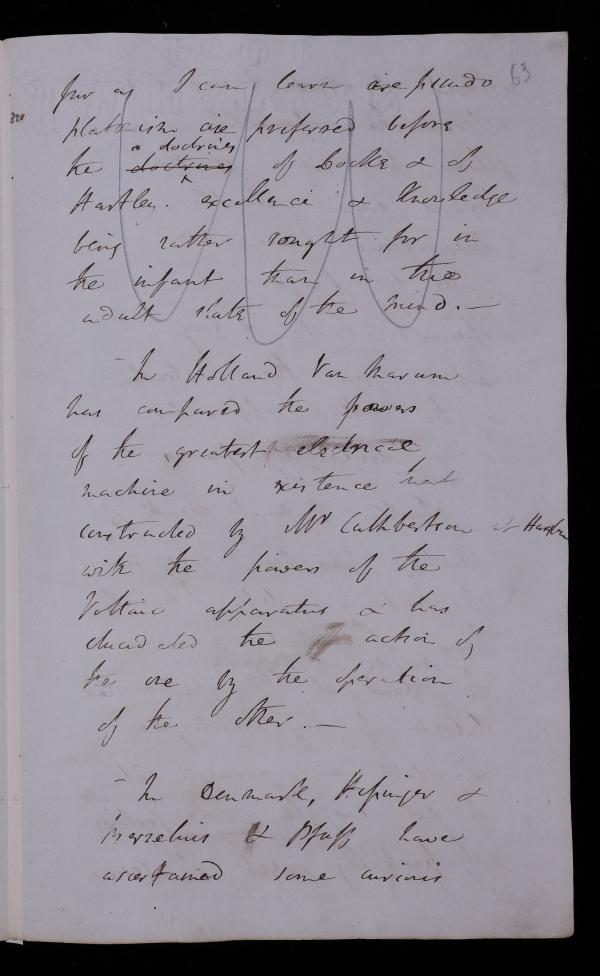 63
far as I can learn are pseudo
platonism are preferred before
doctrines
the doctrines of Locke & of
Hartley. excellence & knowledge
being rather sought for in
the infant than in the
adult state of the mind. —
In Holland Van Marum
has compared the powers
of the greatest electrical
machine in existence that
constructed by Mr Cuthbertson at Harlem
with the powers of the
Voltaic apparatus & has
elucidated the action of
the one by the operation
of the other. —
In Denmark, Hisinger &
Berzelius & Pfaff have
ascertained some curious